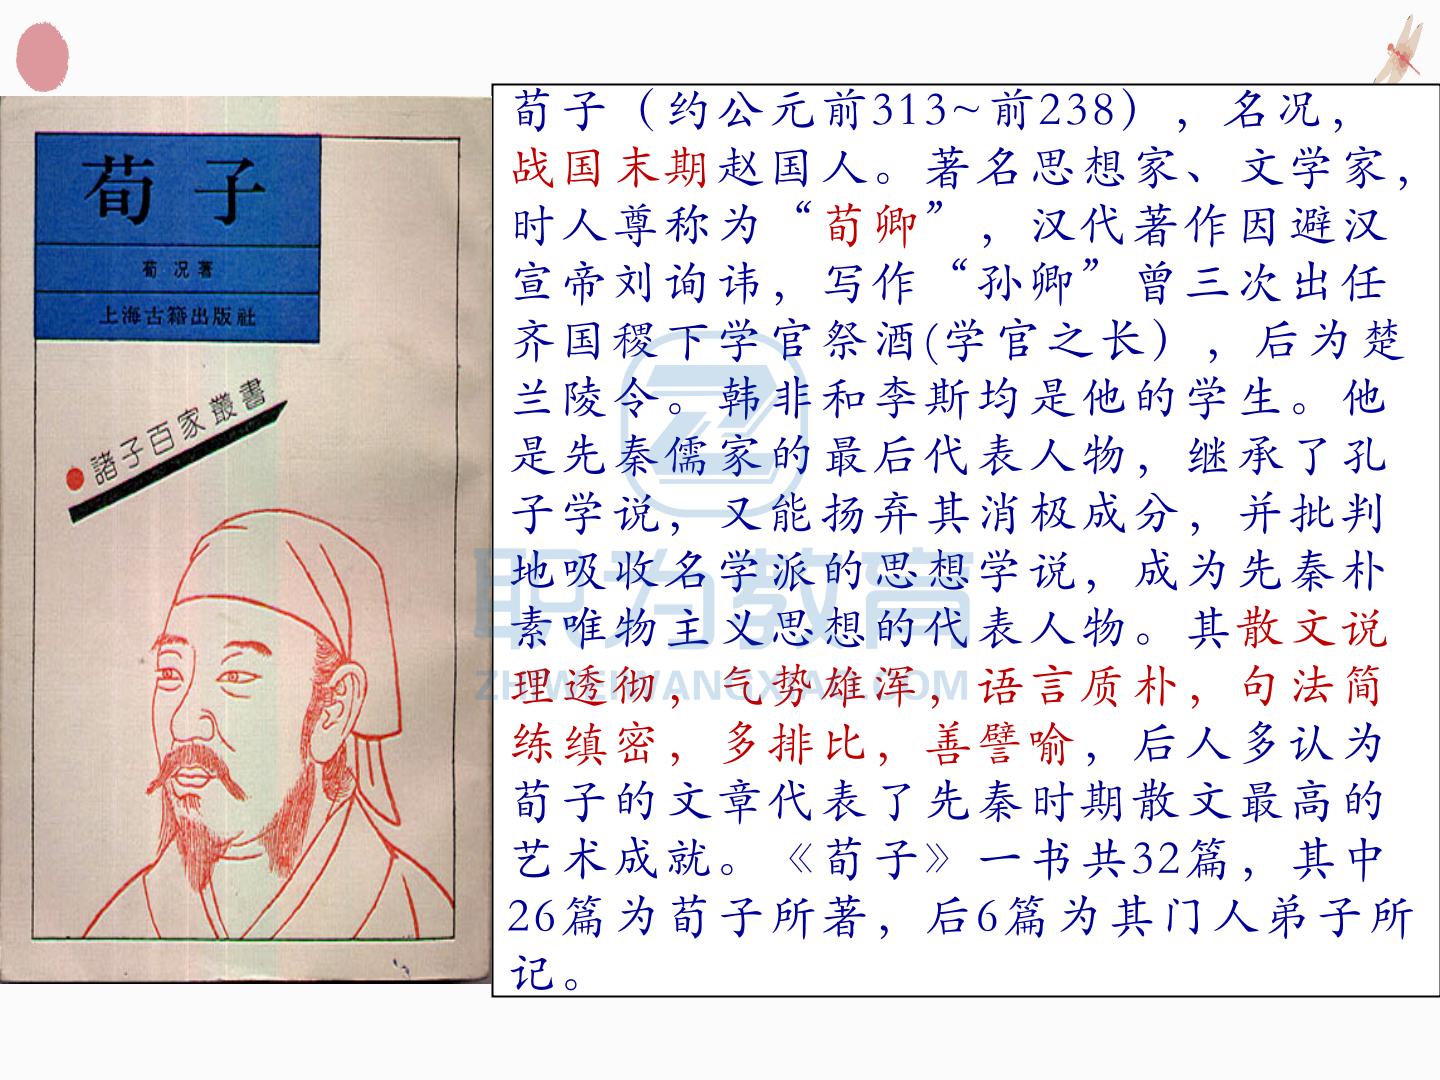 荀子
荀况著
上海古籍出版社
諸子百家叢書
荀子（约公元前313~前238），名况，
战国末期赵国人。著名思想家、文学家，
时人尊称为“荀卿”，汉代著作因避汉
宣帝刘询讳，写作“孙卿”曾三次出任
齐国稷下学官祭酒(学官之长），后为楚
兰陵令。韩非和李斯均是他的学生。他
是先秦儒家的最后代表人物，继承了孔
子学说，又能扬弃其消极成分，并批判
地吸收名学派的思想学说，成为先秦朴
素唯物主义思想的代表人物。其散文说
理透彻，气势雄浑，语言质朴，句法简
练缜密，多排比，善譬喻，后人多认为
荀子的文章代表了先秦时期散文最高的
艺术成就。《荀子》一书共32篇，其中
26篇为荀子所著，后6篇为其门人弟子所
记。
职为教育
ZHIWEIWANGXIAO.COM